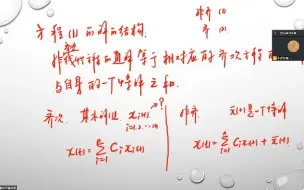 方程(1)的解的结构. 非齐 (1)
齐 (2)
非线代方程的通解等于相对应的齐次方程的
与自身的一个特解之和.
齐次. 基本解组. x_i(t) ?
i=1,2,...n
x(t) = ∑_{i=1}^{n} C_i x_i(t)
非齐. x̄(t)是一个特解
x(t) = ∑_{i=1}^{n} C_i x_i(t) + x̄(t)